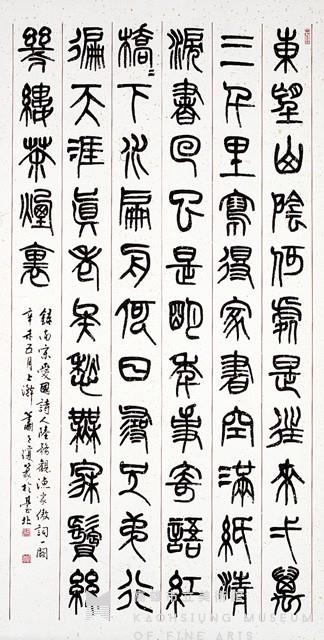 東望山陰何處是往來弌萬
三千里寫得家書空滿紙清
淚書回已是明年事寄語紅
橋〻下水扁舟何日尋兄弟行
徧天涯眞老矣愁無寐鬢絲
幾縷茶煙裏
錄南宋愛國詩人陸務觀漁家傲詞一闋
五月上澣 蕭子 篆於臺北
KAOHSIUNG MUSEUM
OF FINE ARTS